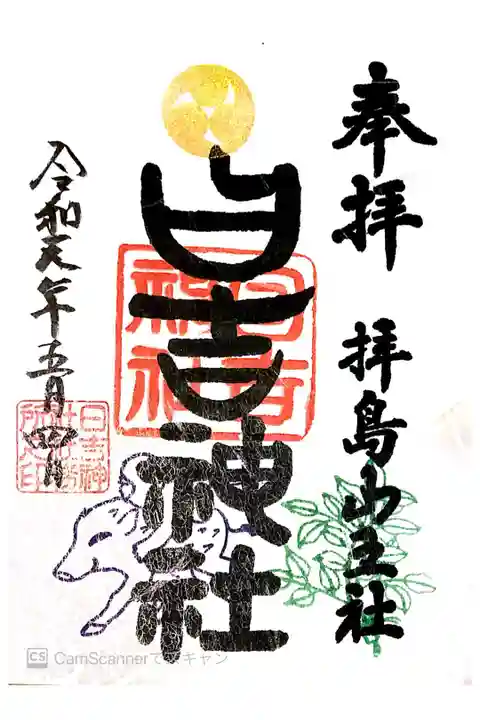 奉拝 拝島山王社
日吉神社
日吉神社
令和元年五月四日
日吉神社社務所之印
CS CamScannerでスキャン